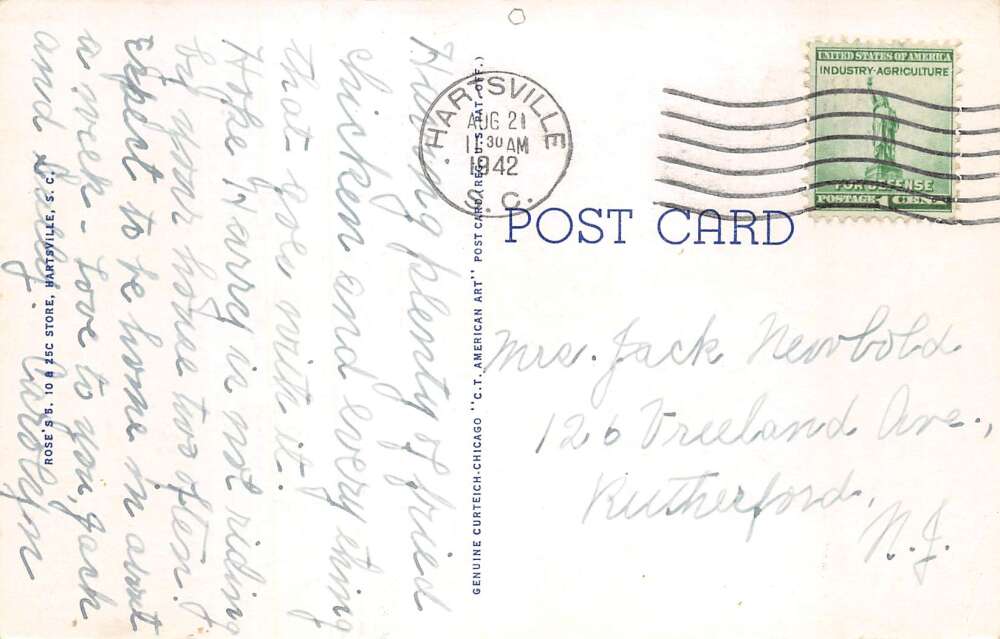 Having plenty of fried
chicken and every thing
that goes with it.
Hope Harry is not riding
by your house too often. I
expect to be home in about
a week - love to you, Jack
and
Carolyn
ROSE'S 5, 10 & 25C STORE, HARTSVILLE, S. C.
GENUINE CURTEICH-CHICAGO "C.T. AMERICAN ART" POST CARD (REG. U.S. PAT. OFF.)
HARTSVILLE
AUG 21
11 30 AM
1942
S. C.
UNITED STATES OF AMERICA
INDUSTRY-AGRICULTURE
FOR DEFENSE
POSTAGE 1 CENT
POST CARD
Mrs. Jack Newbold
126 Vreeland Ave.,
Rutherford,
N.J.